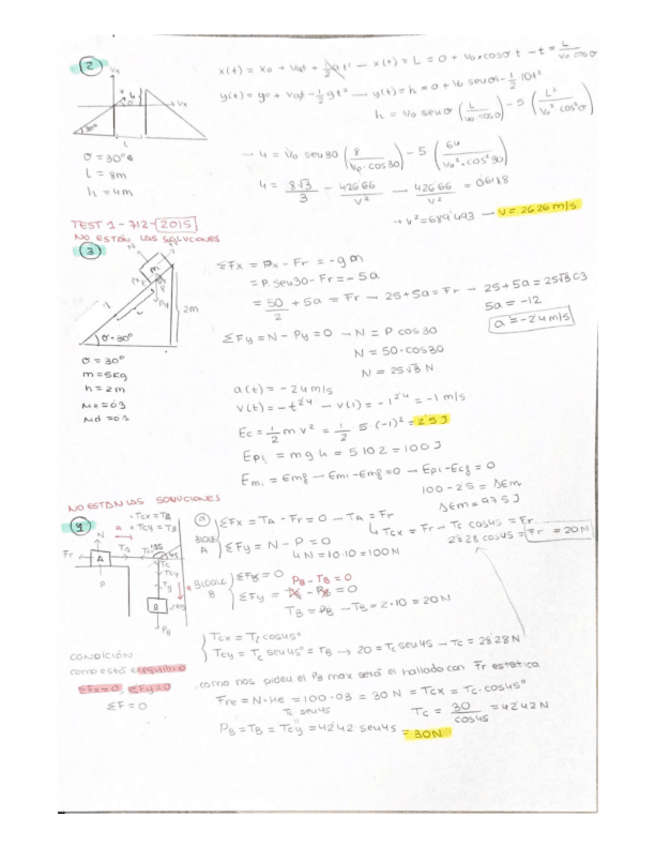 2
x(t) = x₀ + v₀t + ½at² — x(t) = L = 0 + v₀·cosσ t — t = L / v₀ cosσ
y(t) = y₀ + v₀t - ½gt² — y(t) = h = 0 + v₀ senσ - ½ 10t²
h = v₀ senσ (L / v₀·cosσ) - 5 (L² / v₀²·cos²σ)
30°
L
σ = 30°
L = 8m
h = 4m
→ 4 = v₀ sen30 (8 / v₀·cos30) - 5 (64 / v₀²·cos²30)
4 = 8√3 / 3 - 426'66 / v² → 426'66 / v² = 0'6188
→ v² = 689'493 — v = 26'26 m/s
TEST 1 - 712 - 2015
NO ESTÁN LAS SOLUCIONES
3
N
m
2m
σ=30°
ΣFx = Px - Fr = -g m
= P. sen30 - Fr = -5a
= 50/2 + 5a = Fr → 25+5a = Fr → 25+5a = 25√3·0'3
5a = -12
a = -2'4 m/s
ΣFy = N - Py = 0 → N = P cos30
N = 50·cos30
N = 25√3 N
σ = 30°
m = 5kg
h = 2m
Me = 0'3
Md = 0'3
a(t) = -2'4 m/s
v(t) = -t^2'4 — v(1) = -1^2'4 = -1 m/s
Ec = ½ m v² = ½ 5 (-1)² = 2'5 J
Epi = mgh = 5·10·2 = 100J
Emi = Emf → Emi - Emf = 0 → Epi - Ecf = 0
100 - 2'5 = ΔEm
ΔEm = 97'5 J
NO ESTÁN LAS SOLUCIONES
4
Tcx = TA
Tcy = TB
N
Fr
A
TA
P
Tcy
TB
B
2kg
PB
a
BLOQUE A
ΣFx = TA - Fr = 0 → TA = Fr
Tcx = Fr → Tc cos45 = Fr
28'28 cos45 = Fr = 20N
ΣFy = N - P = 0
N = 10·10 = 100N
BLOQUE B
ΣFx = 0
PB - TB = 0
ΣFy =
TB = PB → TB = 2·10 = 20N
Tcx = Tc cos45°
Tcy = Tc sen45° = TB → 20 = Tc sen45 → Tc = 28'28N
CONDICIÓN
como está en equilibrio
ΣFx=0, ΣFy=0
ΣF = 0
como nos piden el PB max será el hallado con Fr estática
Fre = N·Me = 100·0'3 = 30 N = Tcx = Tc·cos45°
Tc sen45
Tc = 30 / cos45 = 42'42N
PB = TB = Tcy = 42'42 sen45 = 30N